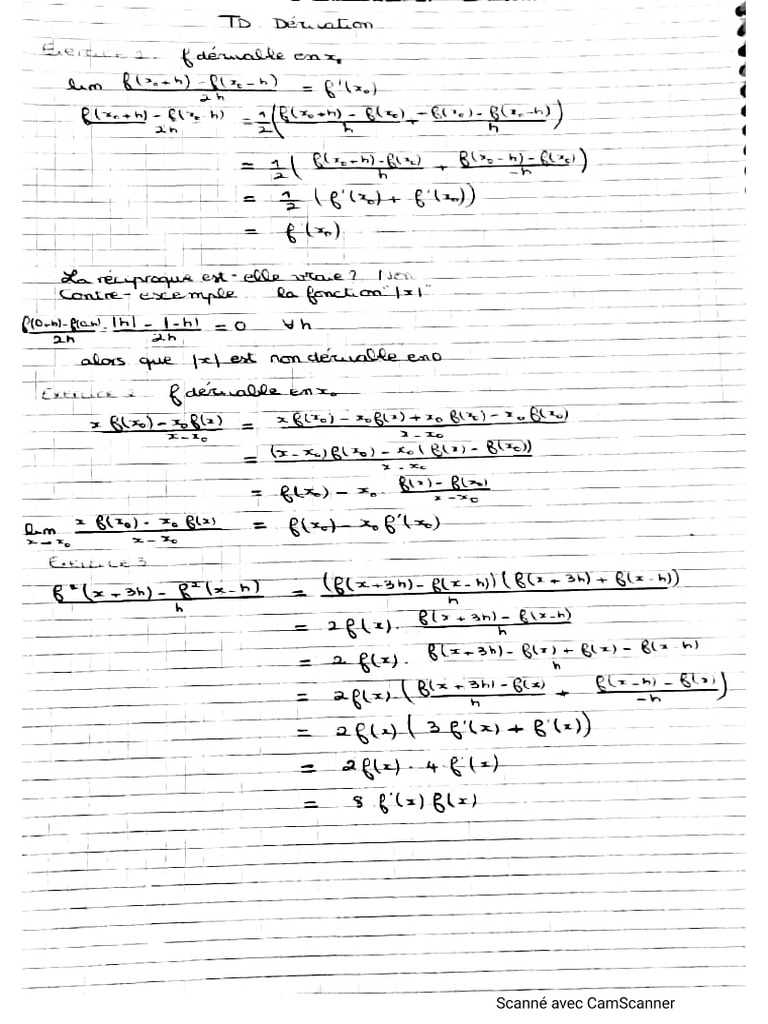 TD Dérivation
Exercice 1. f dérivable en x₀
lim (f(x₀+h) - f(x₀-h))/2h = f'(x₀)
(f(x₀+h) - f(x₀-h))/2h = 1/2 ((f(x₀+h) - f(x₀))/h + (f(x₀) - f(x₀-h))/h)
= 1/2 ((f(x₀+h) - f(x₀))/h + (f(x₀-h) - f(x₀))/-h)
= 1/2 (f'(x₀) + f'(x₀))
= f'(x₀)
La réciproque est-elle vraie? Non
Contre-exemple la fonction "|x|"
(f(0+h) - f(0-h))/2h = (|h| - |-h|)/2h = 0 ∀h
alors que |x| est non dérivable en 0
Exercice 2 f dérivable en x₀
(x f(x₀) - x₀ f(x))/(x - x₀) = (x f(x₀) - x₀ f(x) + x₀ f(x₀) - x₀ f(x₀))/(x - x₀)
= ((x - x₀) f(x₀) - x₀ (f(x) - f(x₀)))/(x - x₀)
= f(x₀) - x₀ . (f(x) - f(x₀))/(x - x₀)
lim x→x₀ (x f(x₀) - x₀ f(x))/(x - x₀) = f(x₀) - x₀ f'(x₀)
Exercice 3
(f²(x+3h) - f²(x-h))/h = ((f(x+3h) - f(x-h)) (f(x+3h) + f(x-h)))/h
= 2 f(x) . (f(x+3h) - f(x-h))/h
= 2 f(x) . (f(x+3h) - f(x) + f(x) - f(x-h))/h
= 2 f(x) . ((f(x+3h) - f(x))/h + (f(x-h) - f(x))/-h)
= 2 f(x) (3 f'(x) + f'(x))
= 2 f(x) . 4 . f'(x)
= 8 f'(x) f(x)
Scanné avec CamScanner